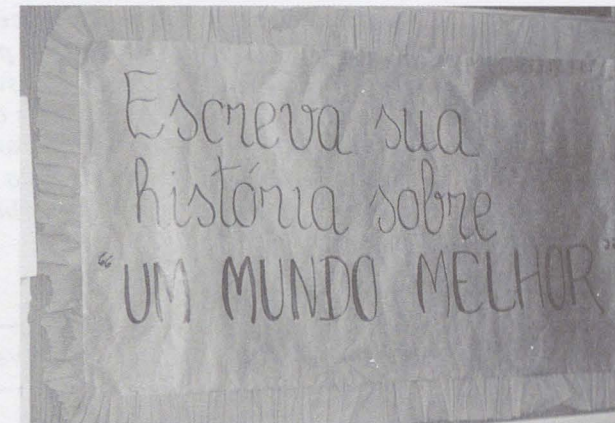 Escreva sua
história sobre
"UM MUNDO MELHOR"